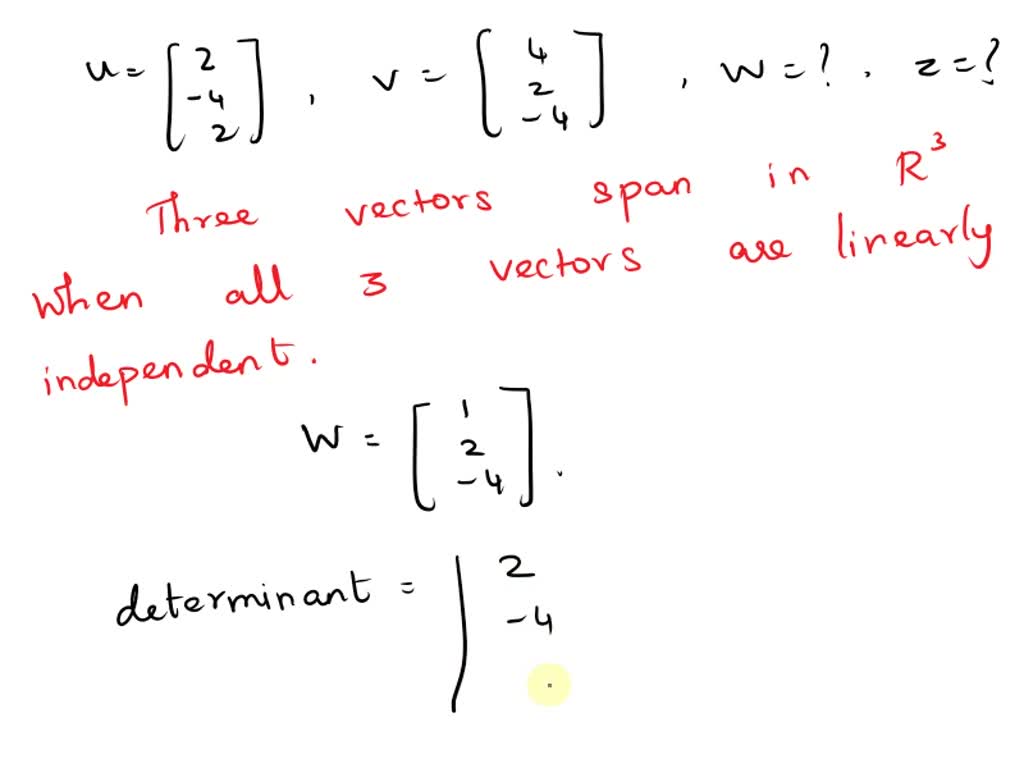 u = [2 -4 2], v = [4 2 -4], w = ?, z = ?
Three vectors span in R³
when all 3 vectors are linearly
independent.
W = [1 2 -4].
determinant = | 2 -4